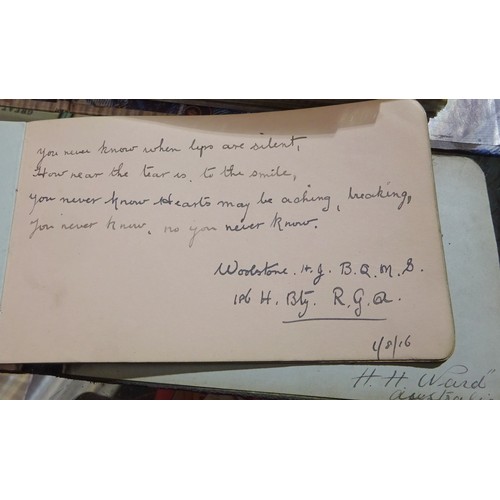 you never know when lips are silent,
How near the tear is, to the smile,
you never know Hearts may be aching, breaking,
You never know, no you never know.
Woolstone. H. J. B. Q. M. S.
186 H. Bty. R. G. A.
1/8/16
H. H. Ward
Australia